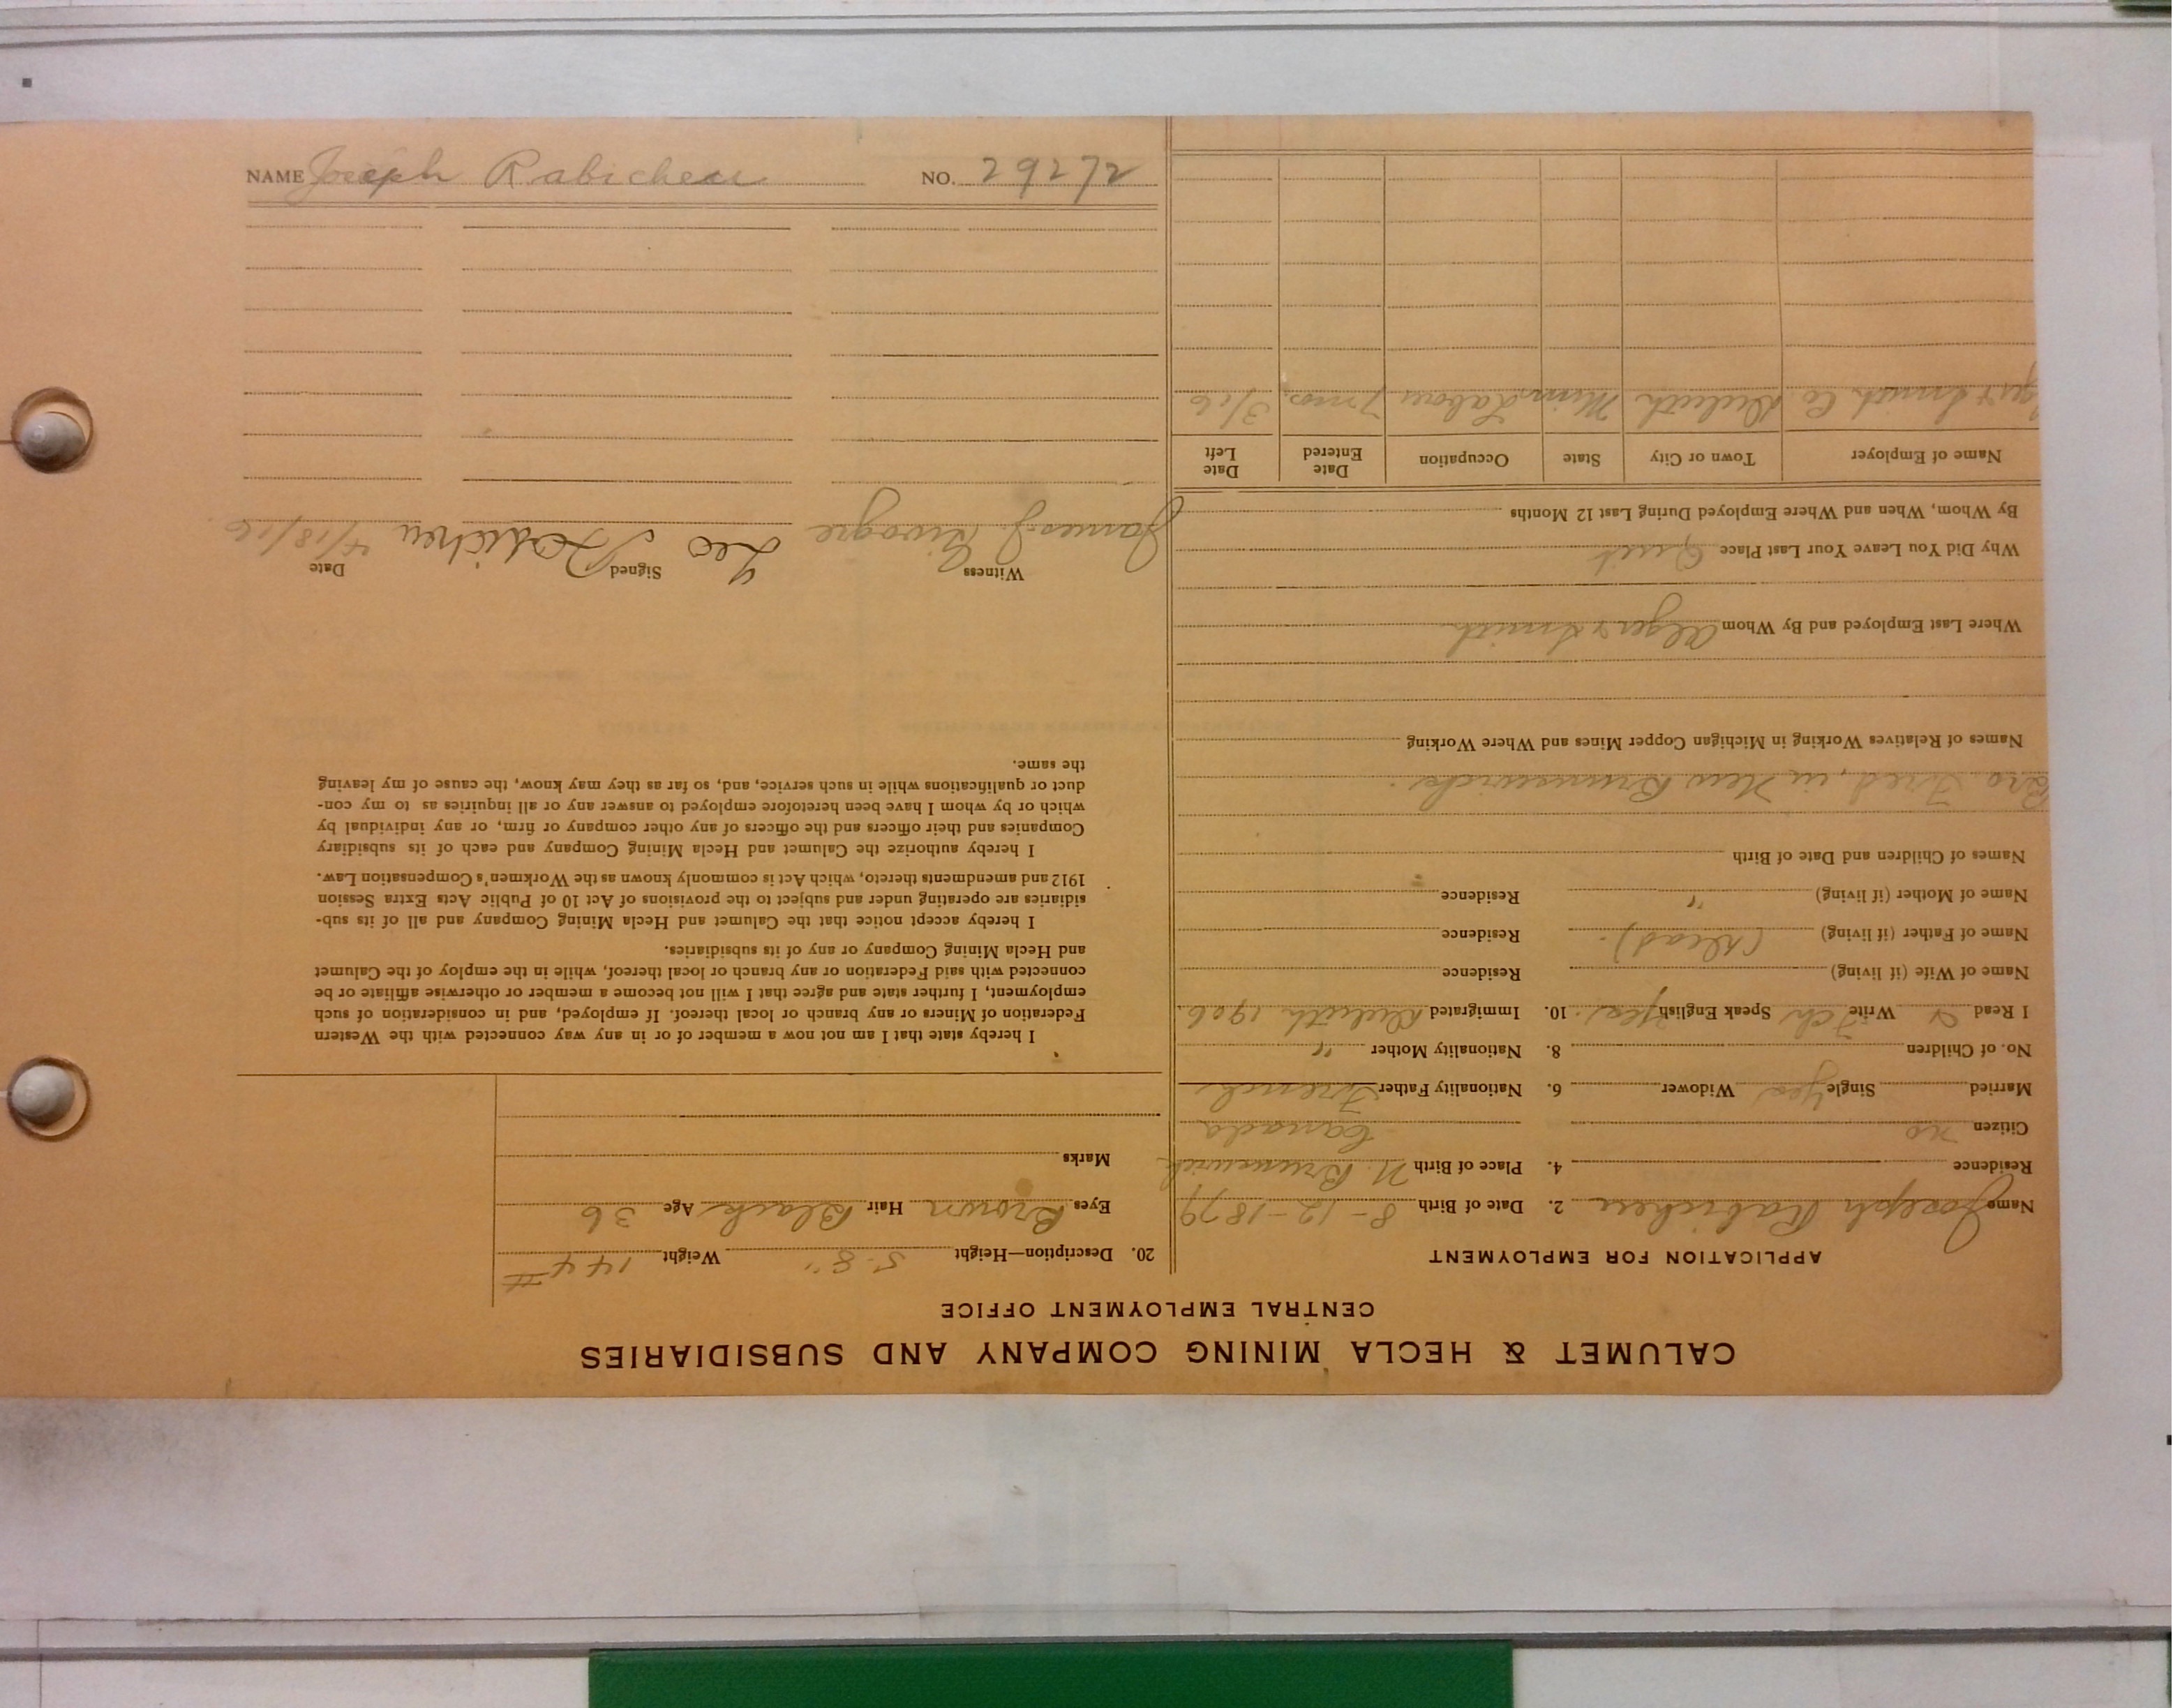 NAME Joseph Rabicheau NO. 29272
CALUMET & HECLA MINING COMPANY AND SUBSIDIARIES
CENTRAL EMPLOYMENT OFFICE
APPLICATION FOR EMPLOYMENT
Name Joseph Rabicheau 2. Date of Birth 8-12-1879
Residence 4. Place of Birth N. Brunswick
Citizen no Canada
Married Single yes Widower 6. Nationality Father French
No. of Children 8. Nationality Mother "
I Read Write Speak English yes. 10. Immigrated Duluth 1906.
Name of Wife (if living) Residence
Name of Father (if living) (Dead). Residence
Name of Mother (if living) " Residence
Names of Children and Date of Birth
Bro Fred, in New Brunswick.
Names of Relatives Working in Michigan Copper Mines and Where Working
Where Last Employed and By Whom Alger & Smith
Why Did You Leave Your Last Place Quit
By Whom, When and Where Employed During Last 12 Months
Name of Employer Town or City State Occupation Date Entered Date Left
Alger & Smith Co Duluth Minn Labour 7 mos. 3/16
20. Description—Height 5-8" Weight 144 #
Eyes Brown Hair Black Age 36
Marks
I hereby state that I am not now a member of or in any way connected with the Western
Federation of Miners or any branch or local thereof. If employed, and in consideration of such
employment, I further state and agree that I will not become a member or otherwise affiliate or be
connected with said Federation or any branch or local thereof, while in the employ of the Calumet
and Hecla Mining Company or any of its subsidiaries.
I hereby accept notice that the Calumet and Hecla Mining Company and all of its sub-
sidiaries are operating under and subject to the provisions of Act 10 of Public Acts Extra Session
1912 and amendments thereto, which Act is commonly known as the Workmen's Compensation Law.
I hereby authorize the Calumet and Hecla Mining Company and each of its subsidiary
Companies and their officers and the officers of any other company or firm, or any individual by
which or by whom I have been heretofore employed to answer any or all inquiries as to my con-
duct or qualifications while in such service, and, so far as they may know, the cause of my leaving
the same.
Witness Signed Date
James J. Leo 4/18/16